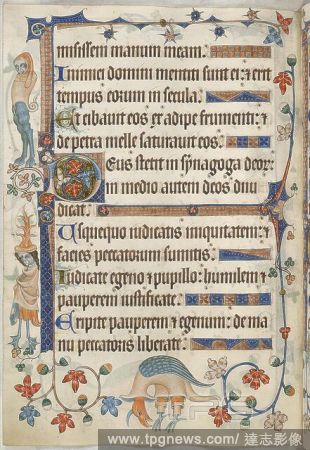 misissem manum meam.
Inimici domini mentiti sunt ei: ⁊ erit
tempus eorum in secula.
Et cibauit eos ex adipe frumenti: ⁊
de petra melle saturauit eos.
Deus stetit in synagoga deor:
in medio autem deos diiu
dicat.
Usquequo iudicatis iniquitatem: ⁊
facies peccatorum sumitis.
Iudicate egeno ⁊ pupillo: humilem ⁊
pauperem iustificate.
Eripite pauperem ⁊ egenum: de ma
nu peccatoris liberate.
www.tpgnews.com/ 達志影像